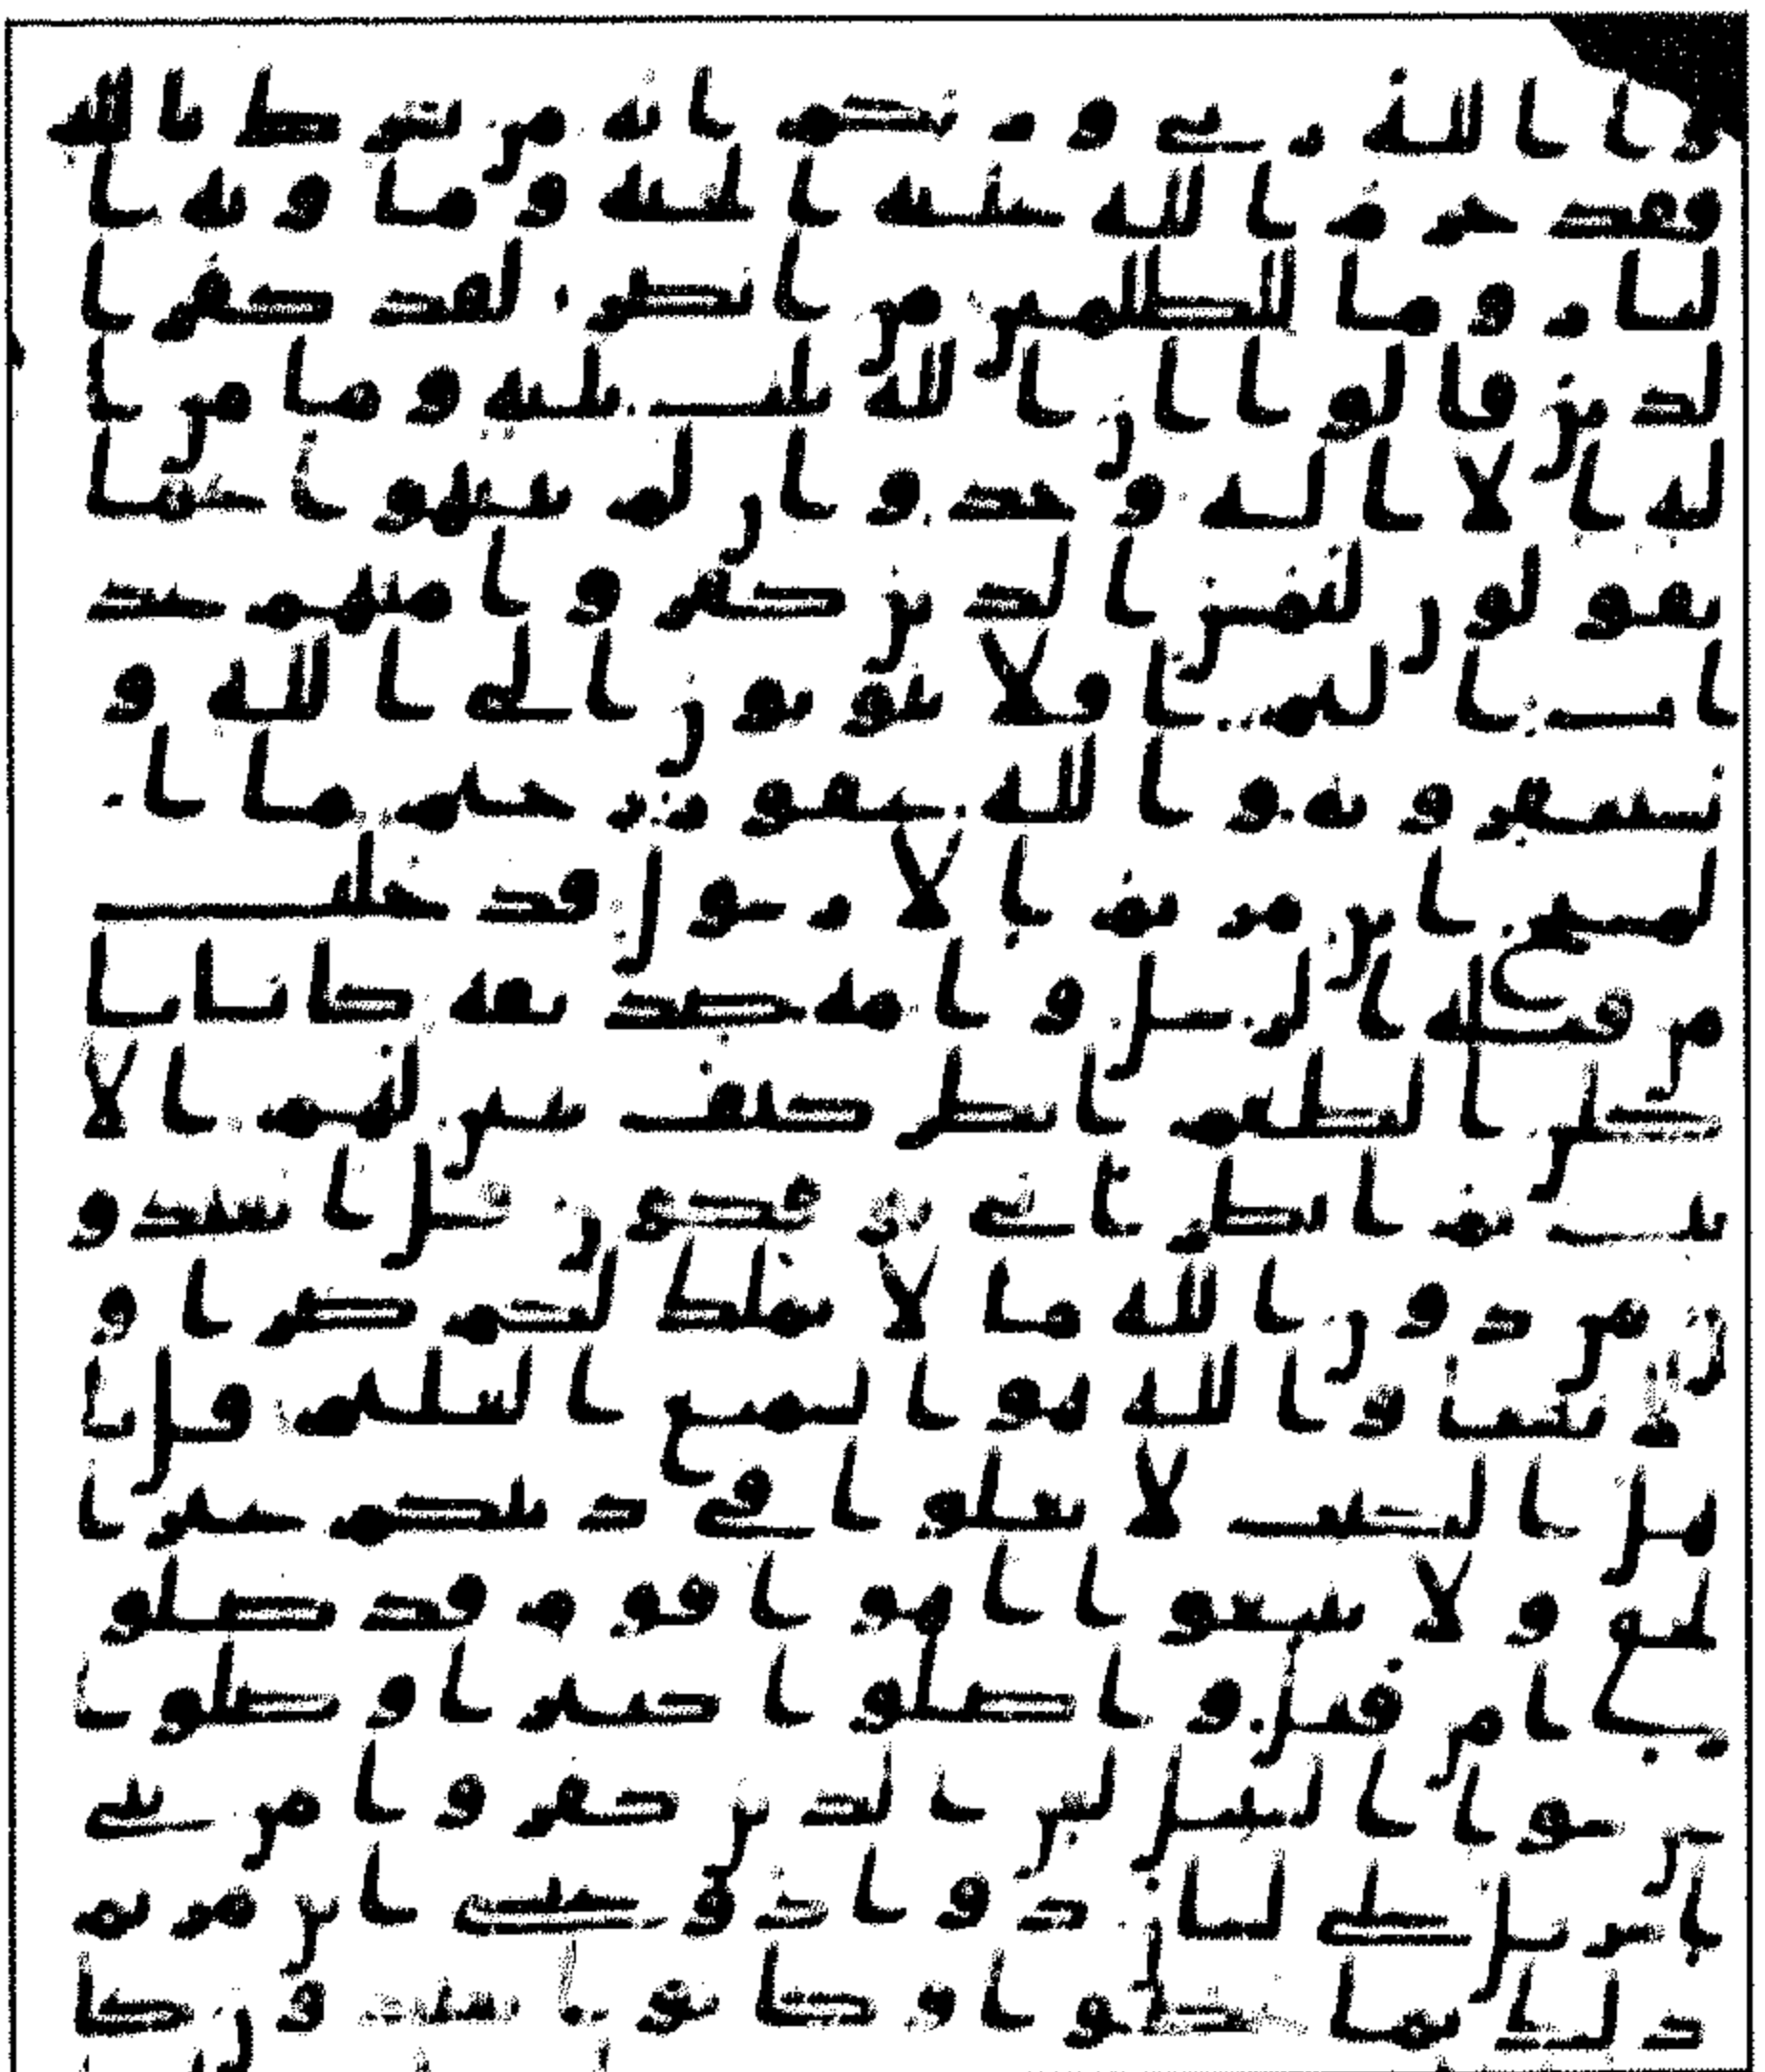 وا الله ربي وربكم انه من يشرك بالله
فقد حرم الله عليه الجنة وماويه ا
لنار وما للظلمين من انصر لقد كفر ا
لذين قالوا ان الله ثلث ثلثة وما من ا
له الا اله وحد وان لم ينتهوا عما
يقولون ليمسن الذين كفروا منهم عذ
اب اليم افلا يتوبون الى الله و
يستغفرونه والله غفور رحيم ما ا
لمسيح ابن مريم الا رسول قد خلت
من قبله الرسل وامه صديقة كانا يا
كلن الطعم انظر كيف نبين لهم الا
يت ثم انظر انى يوفكون قل اتعبدو
ن من دون الله ما لا يملك لكم ضرا و
لا نفعا والله هو السميع العليم قل يا
هل الكتب لا تغلوا في دينكم غير ا
لحق ولا تتبعوا اهوا قوم قد ضلو
ا من قبل واضلوا كثيرا وضلوا
عن سوا السبيل لعن الذين كفروا من بني
اسريل على لسان داود وعيسى ابن مريم
ذلك بما عصوا وكانوا يعتدون كا